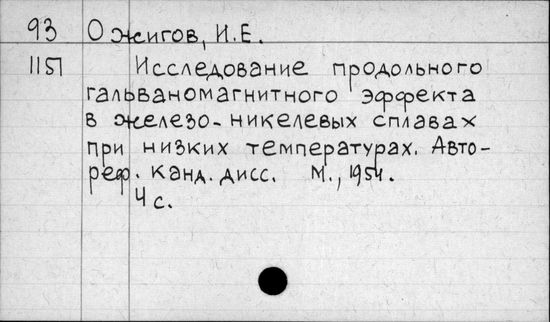 93 Ожигов, И.Е.
1151 Исследование продольного
гальваномагнитного эффекта
в железо-никелевых сплавах
при низких температурах. Авто-
реф. канд. дисс. М., 1954.
4 с.